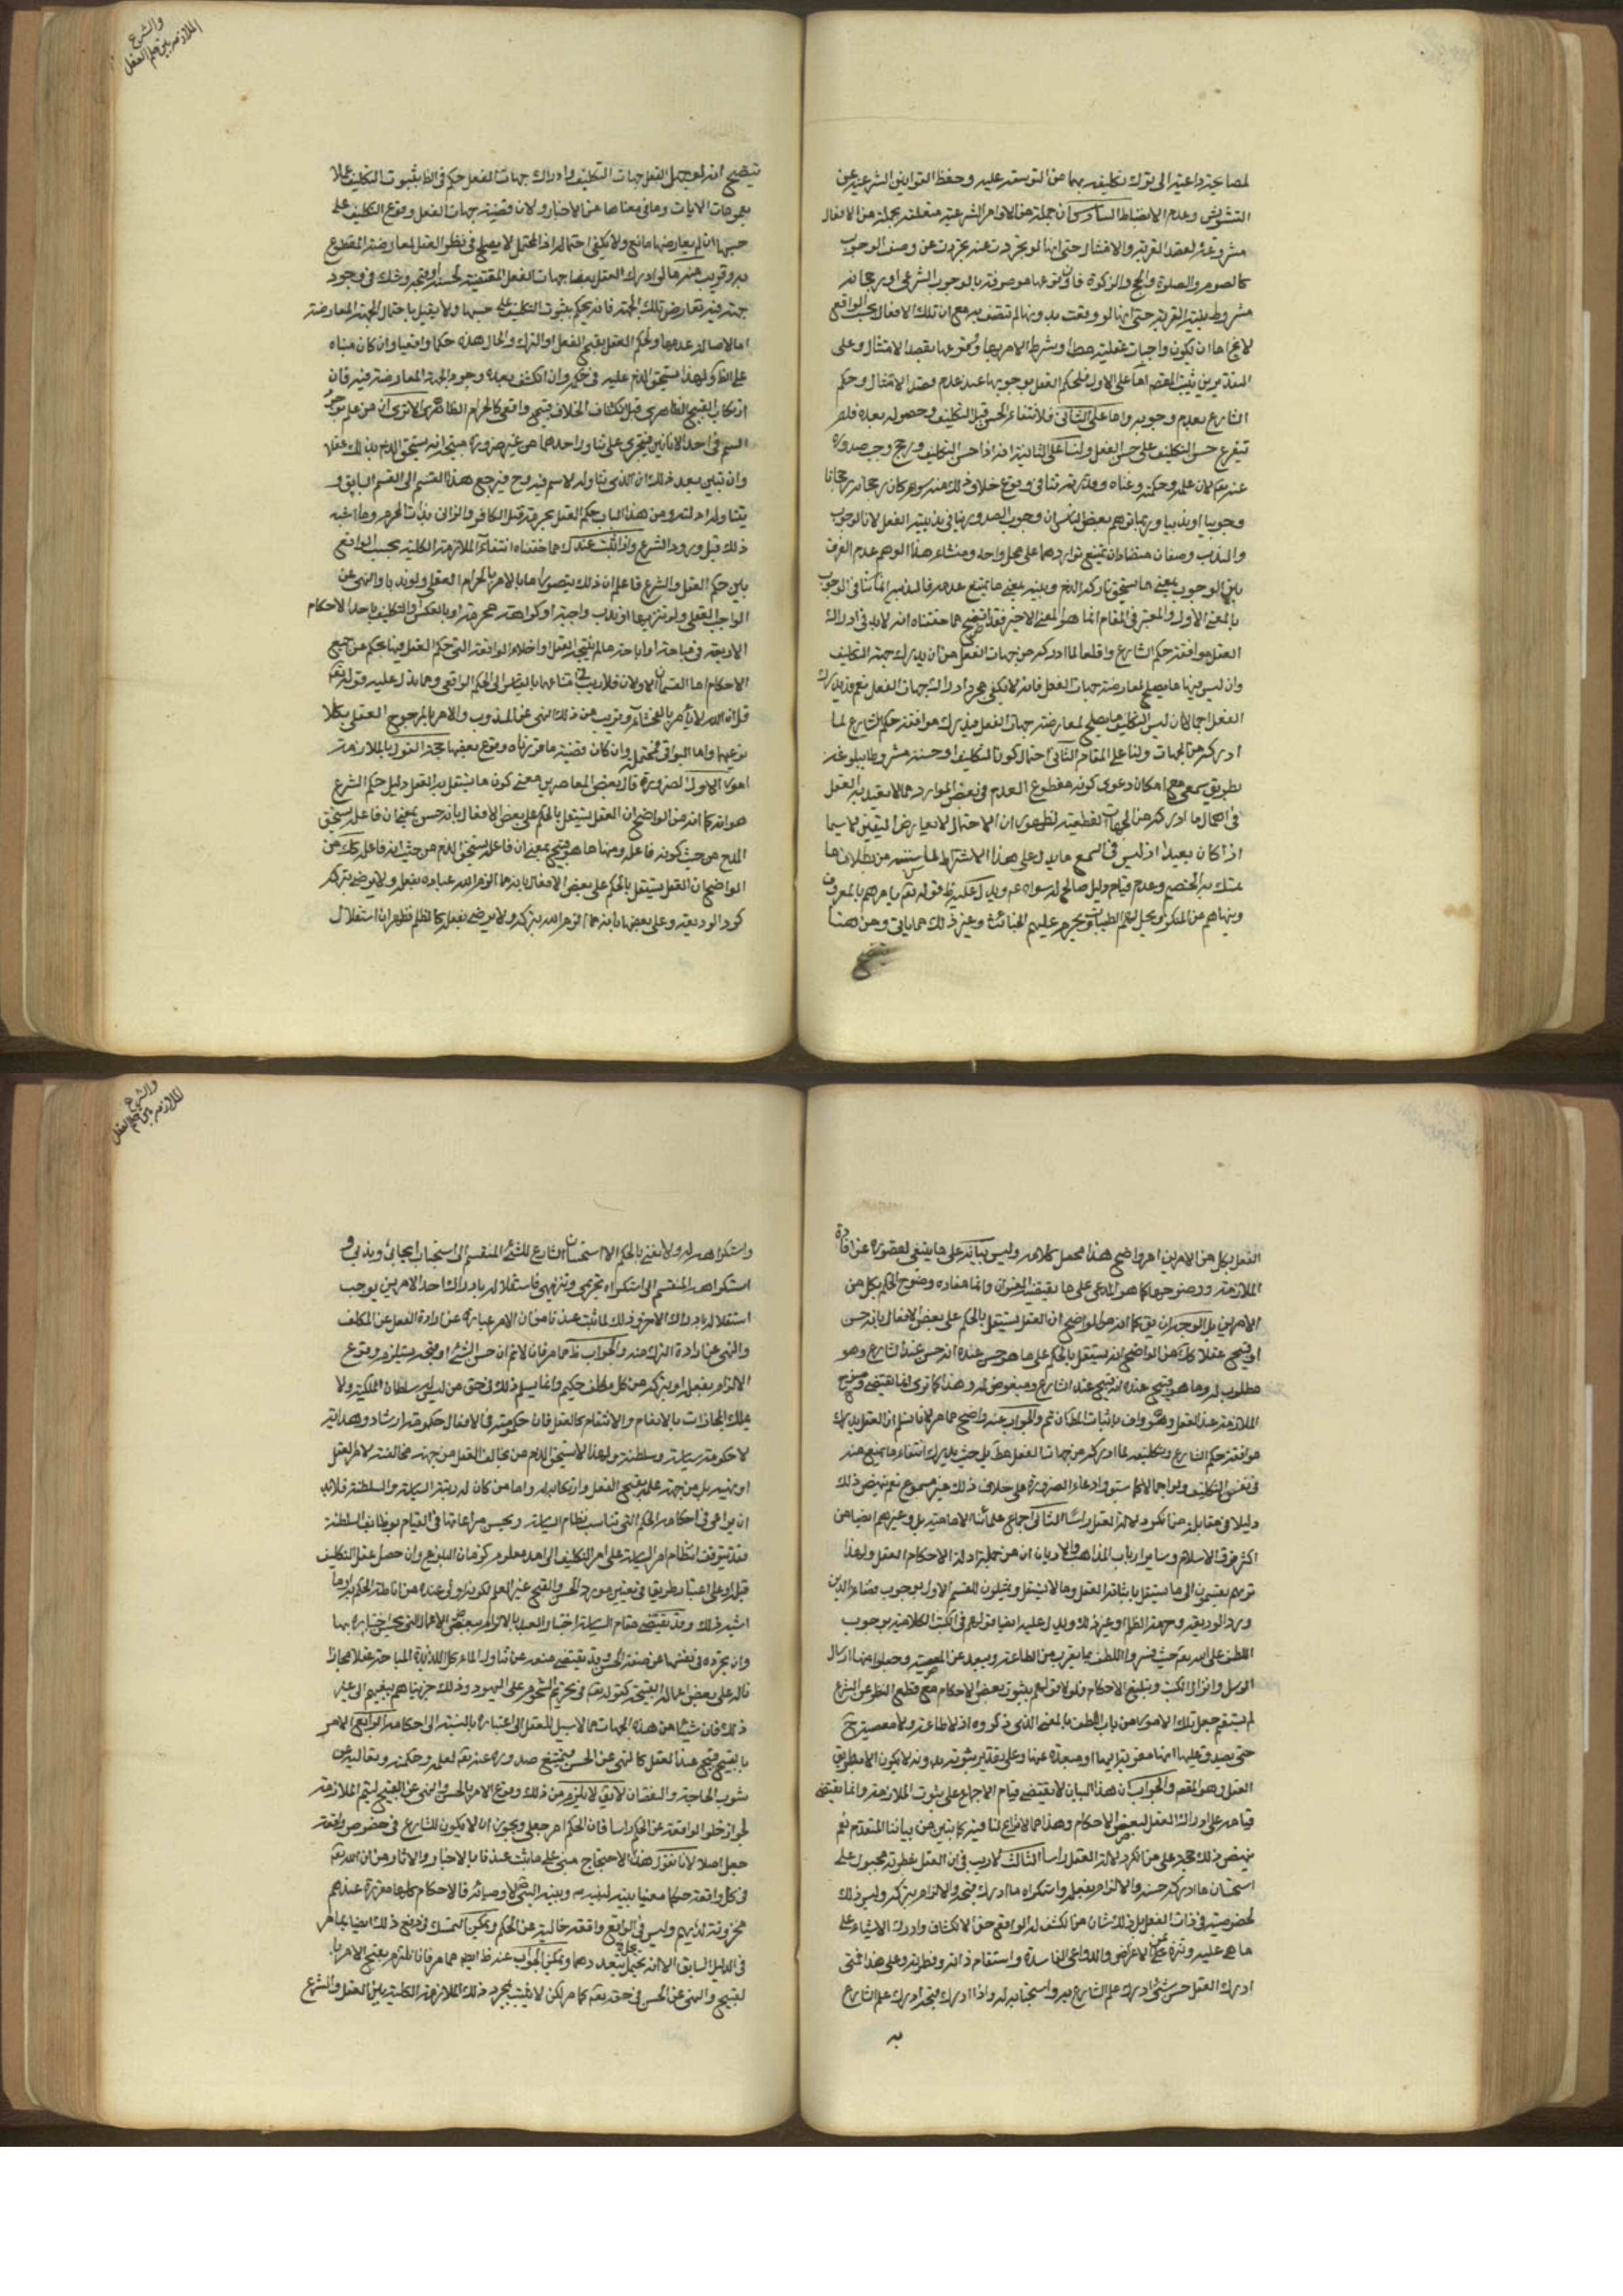 لمصاحبته داعية الى ترك تكليفه بهما من التوسعة عليه وحفظ القوانين الشرعية عن
التشويش وعدم الانضباط السادس ان جملة من الاوامر الشرعية متعلقة بجملة من الافعال
مشروعة بقصد القربة والامتثال حتى انها لو تجردت عنه تجردت عن وصف الوجوب
كالصوم والصلوة والحج والزكوة فان وقوعها موصوفة بالوجوب الشرعى او رجحانه
مشروط بنية القربة حتى انها لو وقعت بدونها لم تتصف به مع ان تلك الافعال بحسب الواقع
لا يخ اما ان تكون واجبات عقلية مطلقا او بشرط الامر بها ووقوعها بقصد الامتثال وعلى
التقديرين يثبت المقصود اما على الاول فلحكم العقل بوجوبها عند عدم قصد الامتثال وحكم
الشارع بعدم وجوبه واما على الثانى فلانتفاء الحسن قبل التكليف وحصوله بعده فلم
يتفرع حسن التكليف على حسن الفعل ولنا على الثانية انه اذا حسن التكليف ورجح وجب صدوره
عنه تعالى لان علمه وحكمته وغناه وقدرته تنافى وقوع خلاف ذلك منه سواء كان رجحانه رجحانا
وجوبيا او ندبيا وربما توهم بعض الناس ان وجوب الصدور ينافى ندبية الفعل لان الوجوب
والندب وصفان متضادان يمتنع تواردهما على محل واحد ومنشاء هذا الوهم عدم الفرق
بين الوجوب بمعنى ما يستحق تاركه الذم وبينه بمعنى ما يمتنع عدمه فالندب انما ينافى الوجوب
بالمعنى الاول والمعتبر فى المقام انما هو المعنى الاخير فقد اتضح مما حققناه انه لا بد فى ادراك
العقل موافقة حكم الشارع واقعا لما ادركه من جهات الفعل من ان يدرك جهة التكليف
وان ليس فيها ما يصلح لمعارضة جهات الفعل فانه لا يكفى مجرد ادراك جهات الفعل نعم قد يدرك
الفعل اجمالا ان ليس للتكليف ما يصلح لمعارضة جهات الفعل فيدرك موافقة حكم الشارع لما
ادركه من الجهات ولنا على المقام الثانى احتمال كون التكليف او حسنه مشروطا ببلوغه
بطريق سمعى مع امكان دعوى كونه مقطوع العدم فى بعض الموارد مما لا يقيد به العقل
فى اهمال ما ادركه من الجهات القطعية لظهور ان الاحتمال لا يعارض اليقين لا سيما
اذا كان بعيدا اذ ليس فى السمع ما يدل على هذا الاشتراط لما سنبينه من بطلان ما
تمسك به الخصم وعدم قيام دليل صالح له سواه ويدل عليه قوله تعالى يامرهم بالمعروف
وينهاهم عن المنكر ويحل لهم الطيبات ويحرم عليهم الخبائث وغير ذلك مما ياتى ومن هنا
يتضح
والشرع
الملازمة بين حكم العقل
يتضح انه لو جهل العقل جهات التكليف وادرك جهات الفعل حكم فى الظ بثبوت التكليف عملا
بعمومات الايات وما فى معناها من الاخبار ولان قضية جهات الفعل وقوع التكليف على
حسبها ان لم يعارضها مانع ولا يكفى احتماله اذ المحتمل لا يصلح فى نظر العقل لمعارضة المقطوع
به وقريب منه ما لو ادرك العقل بعض جهات الفعل المقتضية لحسنه او قبحه وشك فى وجود
جهة فيه تعارض تلك الجهة فانه يحكم بثبوت التكليف على حسبها ولا يقيل باحتمال الجهة المعارضة
اما لاصالة عدمها ولحكم العقل بقبح الفعل او الترك والحال هذه حكما واقعيا وان كان مبناه
على الظ ولهذا يستحق الذم عليه فى حكمه وان انكشف بعده وجود الجهة المعارضة فيه فان
ارتكاب القبيح الظاهرى قبل انكشاف الخلاف قبيح واقعى كالحرام الظاهرى الا ترى ان من علم بوجود
السم فى احد الانائين فتجرى على تناول احدهما من غير ضرورة مبيحة انه يستحق الذم بذلك عقلا
وان تبين بعد ذلك ان الذى تناوله لا سم فيه وح فيرجع هذا القسم الى القسم السابق و
يتناوله ادلته ومن هذا الباب حكم العقل بحرمة قتل الكافر والزانى بذات المحرم وما اشبه
ذلك قبل ورود الشرع واذا ثبت عندك مما حققناه انتفاء الملازمة الكلية بحسب الواقع
بين حكم العقل والشرع فاعلم ان ذلك يتصور اما بالامر بالحرام العقلى ولو ندبا والنهى عن
الواجب العقلى ولو تنزيها او ندب واجبه او كراهته محرمه او بالعكس والتكليف باحد الاحكام
الاربعة فى مباحه او اباحة ما لم يقبحه العقل او اخلاء الواقعة التى حكم العقل فيها بحكم عن جميع
الاحكام اما القسمان الاولان فلا ريب فى امتناعهما بالقياس الى الحكم الواقعى ومما يدل عليه قوله تعالى
قل ان الله لا يأمر بالفحشاء وقريب من ذلك النهى عن المندوب والامر بالمرجوح العقلى بكلا
نوعيهما واما البواقى فمحتمل وان كان قضية ما قررناه وقوع بعضها حجة القول بالملازمة
امور الاول الضرورة قال بعض المعاصرين معنى كون ما يستقل به العقل دليل حكم الشرع
هو انه كما انه من الواضح ان العقل يستقل بالحكم على بعض الافعال بانه حسن بمعنى ان فاعله يستحق
المدح من حيث كونه فاعله ومنها ما هو قبيح بمعنى ان فاعله يستحق الذم من حيث انه فاعله كك من
الواضح ان العقل يستقل بالحكم على بعض الافعال بانه مما الزم الله عباده بفعله ولا يرضى بتركه
كرد الوديعة وعلى بعضها بانه مما الزم الله بتركه ولا يرضى بفعله كالظلم فظهر ان استقلال
العقل بكل من الامرين امر واضح هذا محصل كلامه وليس بيانه على ما ينبغى لقصوره عن افادة
الملازمة ووضوحها كما هو المدعى على ما يقتضيه العنوان وانما مفاده وضوح الحكم بكل من
الامرين بل الوجه ان يق كما انه من الواضح ان العقل يستقل بالحكم على بعض الافعال بانه حسن
او قبيح عقلا كك من الواضح انه يستقل بالحكم على ما هو حسن عنده انه حسن عند الشارع وهو
مطلوب له وما هو قبيح عنده انه قبيح عند الشارع ومبغوض له وهذا كما ترى انما يقتضى وضوح
الملازمة عند العقل وهو واف باثبات المط ان تم والجواب عنه واضح مما مر لانا نسلم ان العقل يدرك
موافقة حكم الشارع وتكليفه لما ادركه من جهات الفعل مط بل حيث يدرك انتفاء ما يمنع منه
فى نفس التكليف ولو اجمالا كما سبق وادعاء الضرورة على خلاف ذلك غير مسموع نعم ينهض ذلك
دليلا فى مقابلة من انكر دلالة العقل رأسا الثانى اجماع علمائنا الامامية بل وغيرهم ايضا من
اكثر فرق الاسلام وساير ارباب المذاهب والاديان ان من جملة ادلة الاحكام العقل ولهذا
تريهم يقسمون الى ما يستقل باثباته العقل وما لا يستقل ويمثلون للقسم الاول بوجوب قضاء الدين
ورد الوديعة وحرمة الظلم وغير ذلك ويدل عليه ايضا قولهم فى الكتب الكلامية بوجوب
اللطف على الله تعالى حيث فسروا اللطف بما يقرب من الطاعة ويبعد عن المعصية وجعلوا منها ارسال
الرسل وانزال الكتب وتبليغ الاحكام فلولا قولهم بثبوت بعض الاحكام مع قطع النظر عن الشرع
لم يستقم جعل تلك الامور من باب اللطف بالمعنى الذى ذكروه اذ لا طاعة ولا معصية ح
حتى يصدق عليها انها مقربة اليها او مبعدة عنها وعلى تقدير ثبوته بدونه لا يكون الا بطريق
العقل وهو المقصود والجواب ان هذا البيان لا يقتضى قيام الاجماع على ثبوت الملازمة وانما يقتضى
قيامه على ادراك العقل لبعض الاحكام وهذا مما لا نزاع لنا فيه كما يتبين من بياننا المتقدم نعم
ينهض ذلك حجة على من انكر دلالة العقل رأسا الثالث لا ريب فى ان العقل بفطرته مجبول على
استحسان ما ادرك حسنه والالزام بفعله واستكراه ما ادرك قبحه والالزام بتركه وليس ذلك
لخصوصية فى ذات العقل بل ذلك شان من انكشف له الواقع حق الانكشاف وادرك الاشياء على
ما هى عليه وتنزه عن الاغراض والدواعى الفاسدة واستقام ذاته وفطرته وعلى هذا فمتى
ادرك العقل حسن شئ ادرك علم الشارع به واستحبابه له واذا ادرك قبحه ادرك علم الشارع
به
والشرع
الملازمة بين حكم العقل
واستكراهه له ولا نعنى بالحكم الا استحسان الشارع للشئ المنقسم الى استحباب ايجابى وندبى و
استكراهه المنقسم الى استكراه تحريمى وتنزيهى فاستقلاله بادراك احد الامرين يوجب
استقلاله بادراك الاخر وذلك لما ثبت عندنا من ان الامر عبارة عن ارادة الفعل عن المكلف
والنهى عن ارادة الترك منه والجواب ظ مما مر فان لا نم ان حسن الشئ او قبحه يستلزم وقوع
الالزام بفعله او بتركه من كل مكلف حكيم وانما يسلم ذلك فى حق من ليس له سلطان الملكية ولا
يملك المجازات بالانعام والانتقام كالعقل فان حكومته فى الافعال حكومة ارشاد وهداية
لا حكومة سياسة وسلطنة ولهذا لا يستحق الذم من يخالف العقل من جهة مخالفته لامر العقل
او نهيه بل من جهة علمه بقبح الفعل وارتكابه له واما من كان له رتبة السياسة والسلطنة فلا بد
ان يراعى فى احكامه الحكم التى تناسب نظام السياسة ويحسن مراعاتها فى القيام بوظائف السلطنة
فقد يتوقف انتظام امر السياسة على امر التكليف الى امد معلوم كزمان البلوغ وان حصل عقل التكليف
قبله او على اعتبار طريق فى تعيين موارد الحسن والقبح غير العلم لكونه اولى عنده من اناطة الحكم به او ما
اشبه ذلك وقد يقتضى مقام السياسة اختبار العبد بالالزام ببعض الاعمال التى يجب اختباره بها
وان تجرده فى نفسها عن صفة الحسن وقد يقتضى منعه عن تناول الماء كل اللذيذة المباحة عقلا مجازا
ناله على بعض اعماله القبيحة كقوله تعالى فى تحريم الشحوم على اليهود وذلك جزيناهم ببغيهم الى غير
ذلك فان شيئا من هذه الجهات مما لا سبيل للعقل الى اعتباره بالنسبة الى احكامه الواقعى الامر
بالقبيح قبيح عند العقل كالنهى عن الحسن فيمتنع صدوره عنه تعالى لعلمه وحكمته وتعاليه عن
شوب الحاجة والنقصان لا يق لا يلزم من ذلك وقوع الامر بالحسن والنهى عن القبيح ليتم الملازمة
لجواز خلو الواقعة عن الحكم رأسا فان الحكم امر جعلى ويجوز ان لا يكون للشارع فى خصوص واقعة
جعل اصلا لانا نقول هذا الاحتجاج مبنى على ما ثبت عندنا بالاخبار والاثار من ان لله تعالى
فى كل واقعة حكما معينا بينه لنبيه وبينه النبى لاوصيائه فالاحكام كلها مقررة عندهم
مخزونة لديهم وليس فى الواقع واقعة خالية عن الحكم ويمكن التمسك فى دفع ذلك ايضا بما مر
فى الدليل السابق الا انه يحتمل بتعدد دهما ويمكن الجواب عنه ظ ايضا مما مر فانا نلتزم بقبح الامر با
لقبيح والنهى عن الحسن فى حقه تعالى كما مر لكن لا يثبت بمجرد ذلك الملازمة الكلية بين العقل والشرع